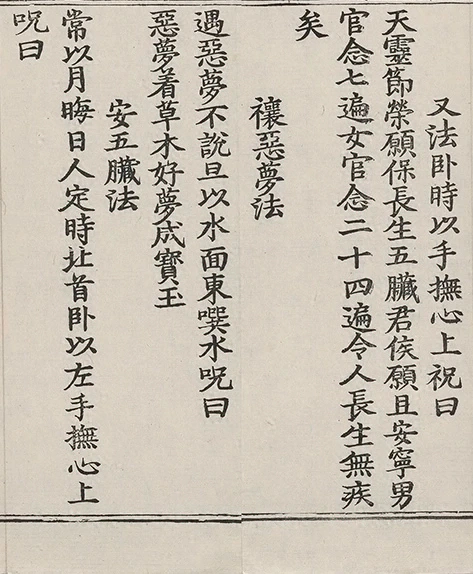 又法卧時以手撫心上祝曰
天靈節榮願保長生五臟君侯願且安寧男
官念七遍女官念二十四遍令人長生無疾
矣
禳惡夢法
遇惡夢不說旦以水面東噀水呪曰
惡夢着草木好夢成寶玉
安五臟法
常以月晦日人定時北首卧以左手撫心上
呪曰